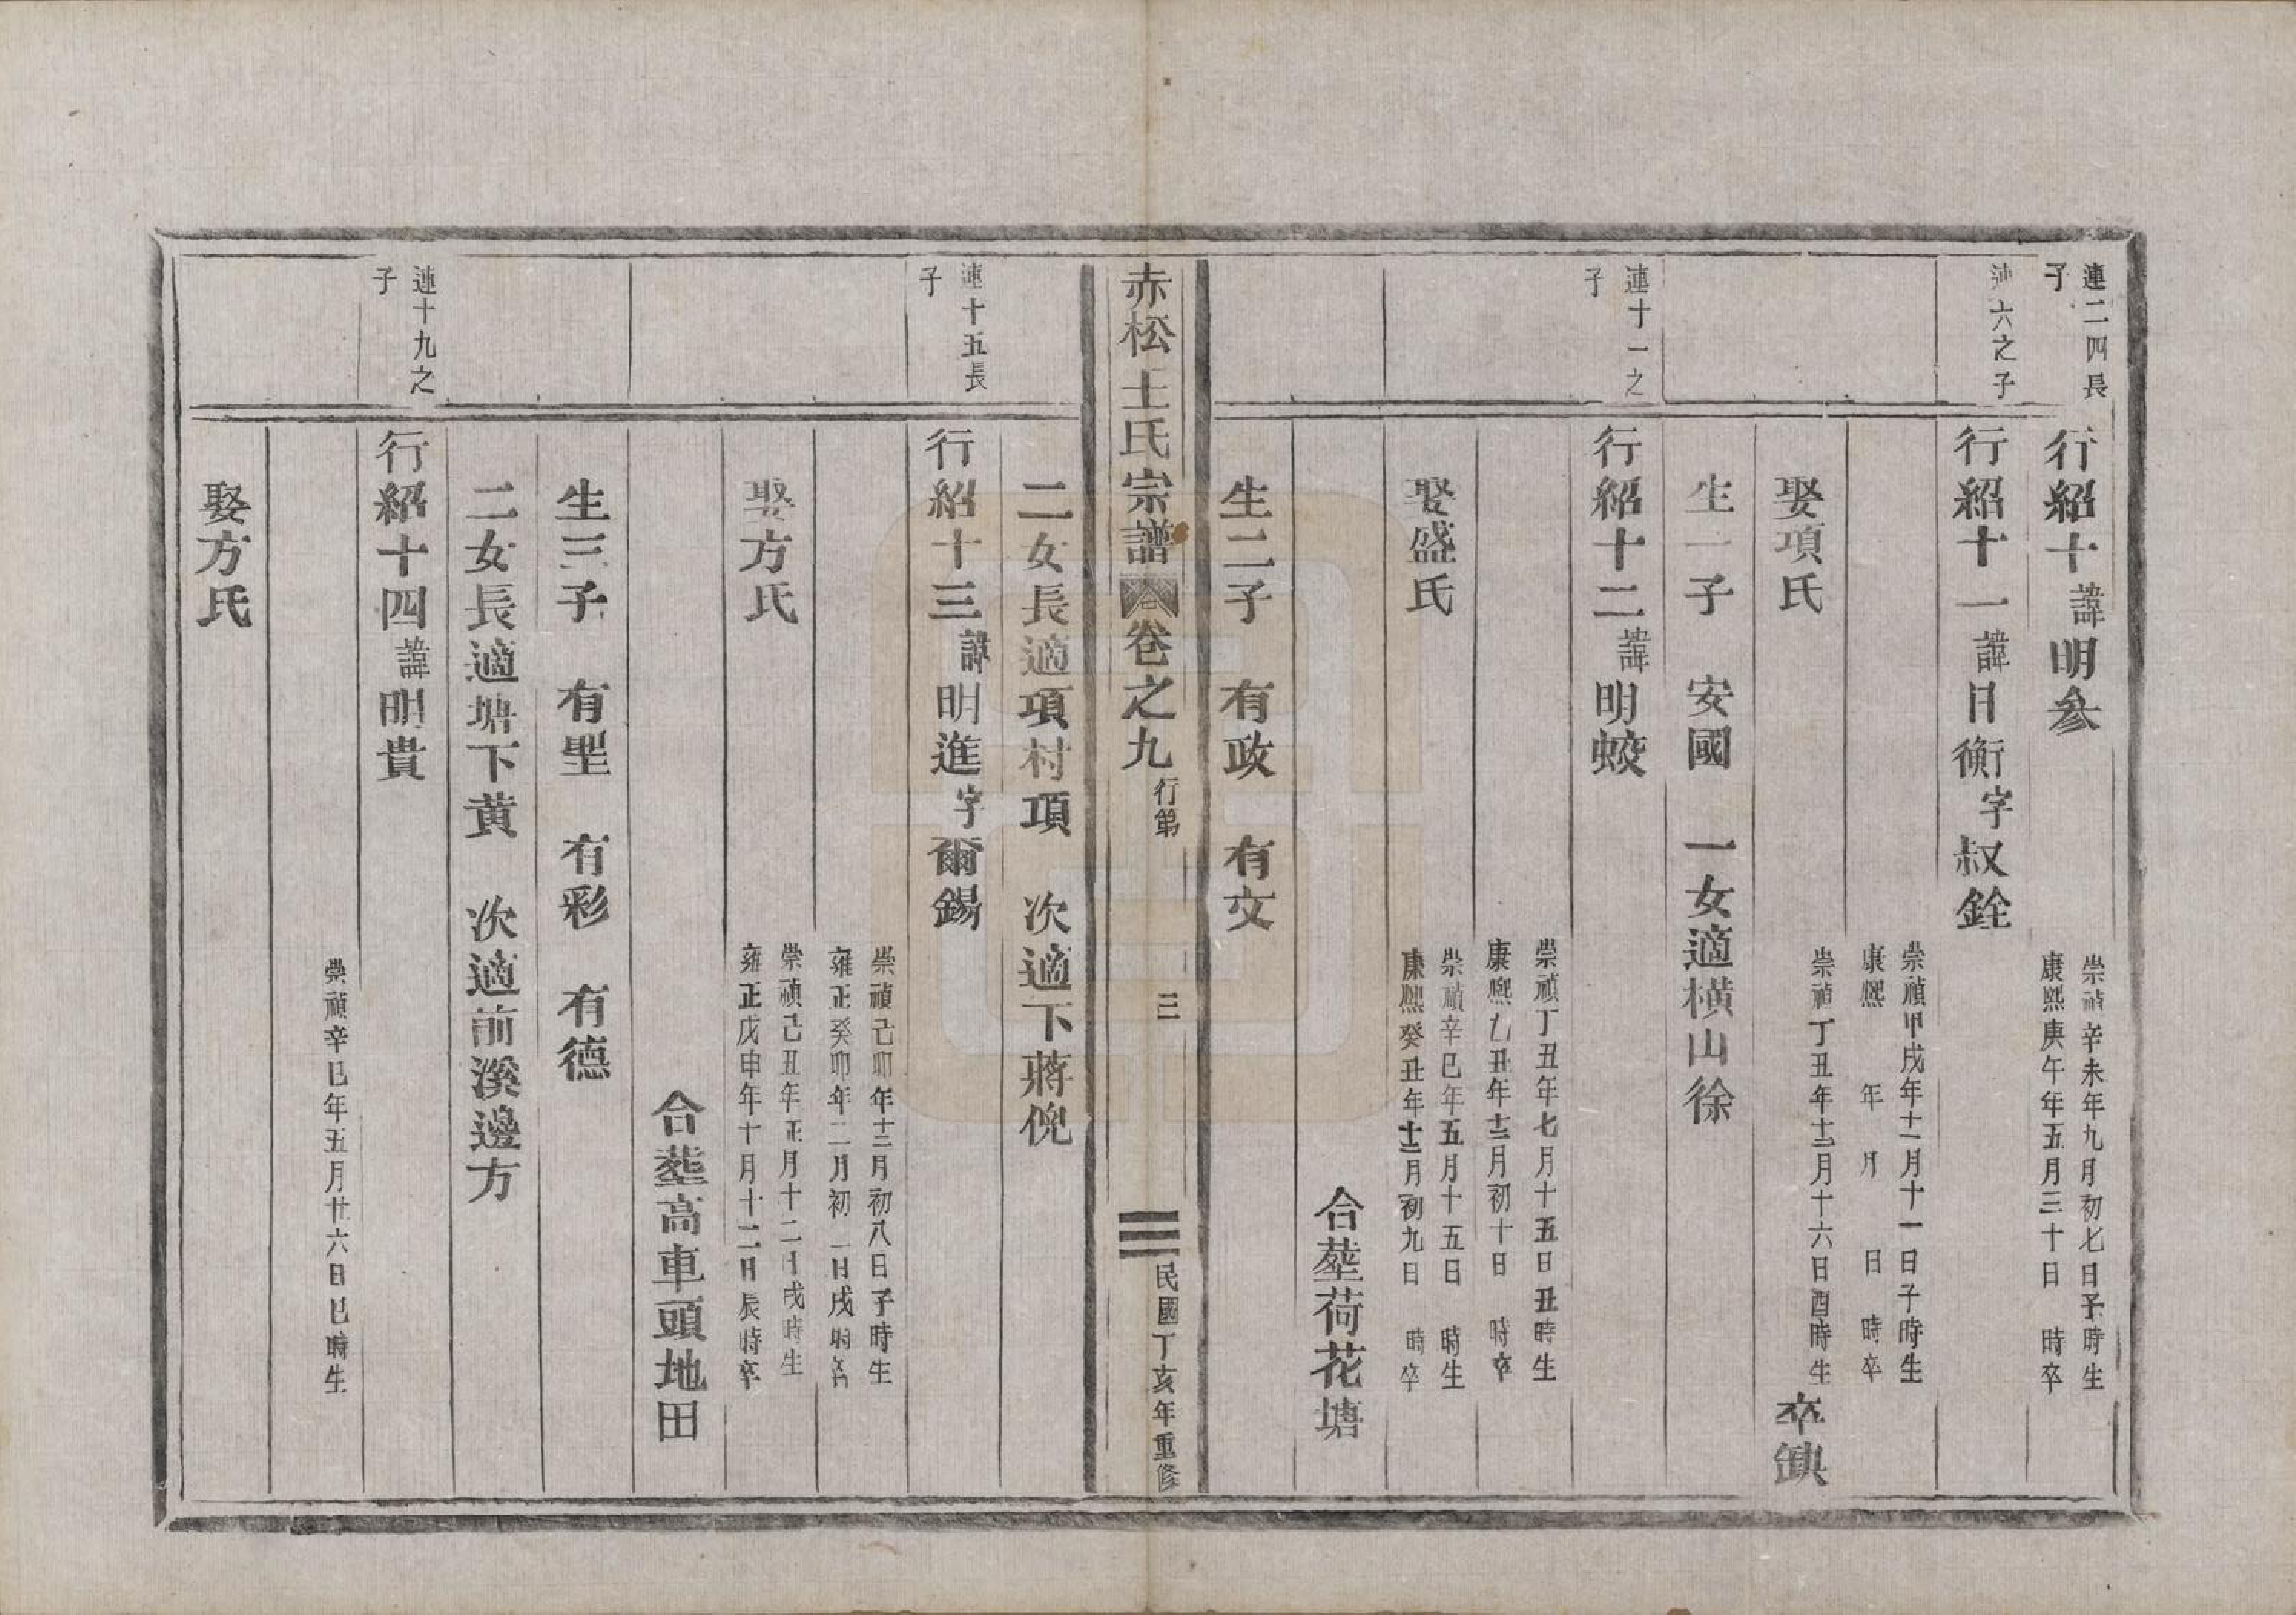 連二四長
子
行紹十諱明參
崇禎辛未年九月初七日子時生
康熙庚午年五月三十日 時卒
連六之子
行紹十一諱日衡字叔銓
崇禎甲戌年十一月十一日子時生
康熙 年 月 日 時卒
娶項氏
崇禎丁丑年十二月十六日酉時生
卒缺
生一子 安國 一女適橫山徐
連十一之
子
行紹十二諱明蛟
崇禎丁丑年七月十五日丑時生
康熙乙丑年十二月初十日 時卒
娶盛氏
崇禎辛巳年五月十五日 時生
康熙癸丑年十二月初九日 時卒
合塟荷花塘
生二子 有政 有文
赤松王氏宗譜 卷之九 行第 三 民國丁亥年重修
二女長適項村項 次適下蔣倪
連十五長
子
行紹十三諱明進字爾錫
崇禎己卯年十二月初八日子時生
雍正癸卯年二月初一日戌時卒
娶方氏
崇禎己丑年正月十二日戌時生
雍正戊申年十月十二日辰時卒
合塟高車頭地田
生三子 有聖 有彩 有德
二女長適塘下黄 次適前溪邊方
連十九之
子
行紹十四諱明貴
崇禎辛巳年五月廿六日巳時生
娶方氏